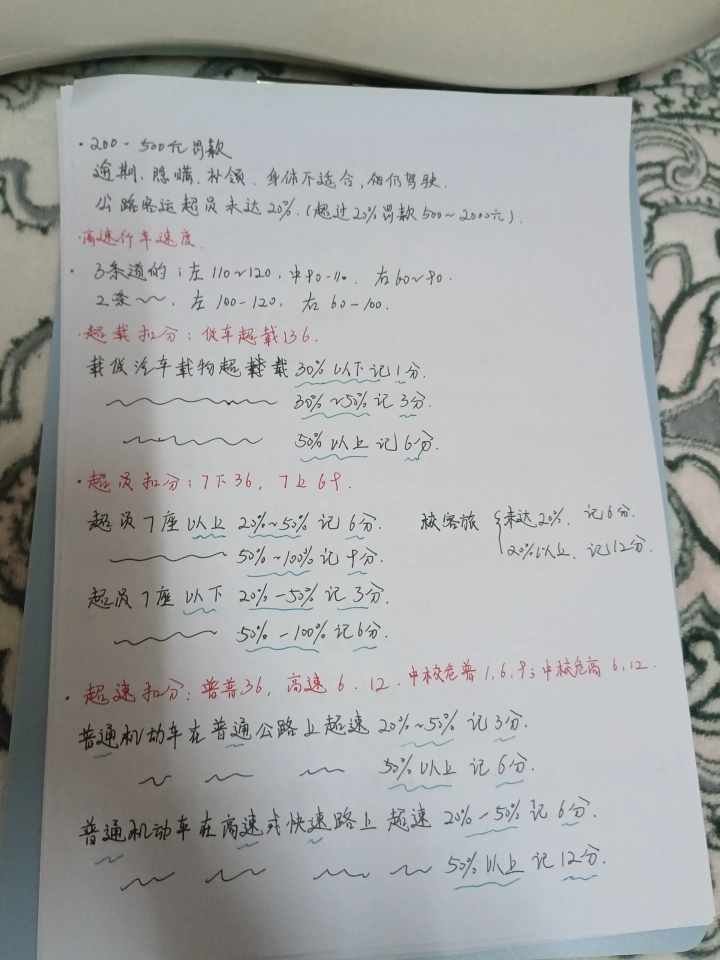 · 200-500元罚款
逾期、隐瞒、补领、身体不适合,但仍驾驶.
公路客运超员未达20%.(超过20%罚款500~2000元).
·高速行车速度.
· 3条道的:左110~120,中90-110. 右60~90.
2条~~,左100-120,右60-100.
·超载扣分:货车超载136.
载货汽车载物超载30%以下记1分.
30%~50%记3分.
50%以上记6分.
·超员扣分:7下36,7上69.
超员7座以上20%~50%记6分.
50%~100%记9分.
校客旅 {未达20%. 记6分.
20%以上. 记12分.
超员7座以下20%-50%记3分.
50%-100%记6分.
·超速扣分:普普36,高速6.12.中校危普1,6,9;中校危高6,12.
普通机动车在普通公路上超速20%~50%记3分.
50%以上记6分.
普通机动车在高速或快速路上超速20%-50%记6分.
50%以上记12分.